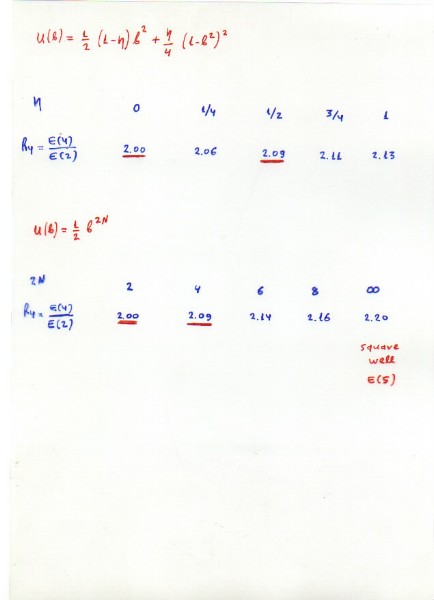 u(β) = 1/2 (1-η) β² + η/4 (1-β²)²
η 0 1/4 1/2 3/4 1
R₄ = E(4)/E(2) 2.00 2.06 2.09 2.11 2.13
u(β) = 1/2 β^2N
2N 2 4 6 8 ∞
R₄ = E(4)/E(2) 2.00 2.09 2.14 2.16 2.20
square
well
E(5)